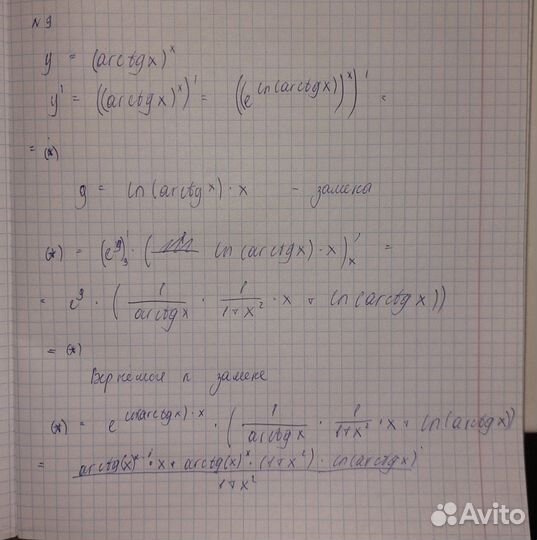 N 9
y = (arctg x)^x
y' = ((arctg x)^x)' = ((e^{ln(arctg x)})^x)' =
= (*)
g = ln(arctg x) · x — замена
(*) = (e^g)'_g · ( ln(arctg x) · x)'_x =
= e^g · ( 1/arctg x · 1/(1+x^2) · x + ln(arctg x))
= (*)
Вернемся к замене
(*) = e^{ln(arctg x) · x} · ( 1/arctg x · 1/(1+x^2) · x + ln(arctg x))
= (arctg(x)^{x-1} · x + arctg(x)^x · (1+x^2) · ln(arctg x))/(1+x^2)
Avito